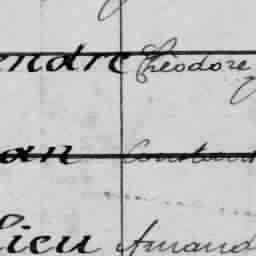 endre Théodore
an Constant
lieu Amand